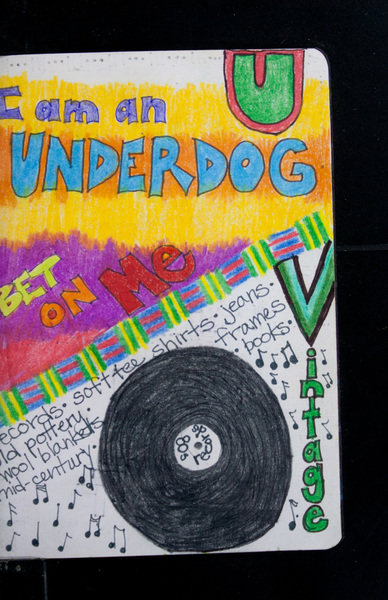 U
I am an
UNDERDOG
BET
ON
Me
Vintage
ecords · soft tee shirts · jeans ·
frames ·
books ·
ld pottery ·
wool blankets ·
mid-century ·